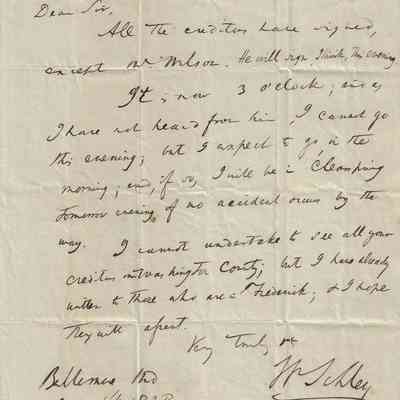 Dear Sir,
All the creditors have signed,
except Mr Wilson. He will sign, I think, this evening
It is now 3 o'clock; and as
I have not heard from him, I cannot go
this evening; but I expect to go, in the
morning; and, if so, I will be in Clearspring
tomorrow evening, if no accident occurs by the
way. I cannot undertake to see all your
creditors in Washington County; but I have already
written to those who are at Frederick; & I hope
they will assent.
Very truly yrs
Wm Schley